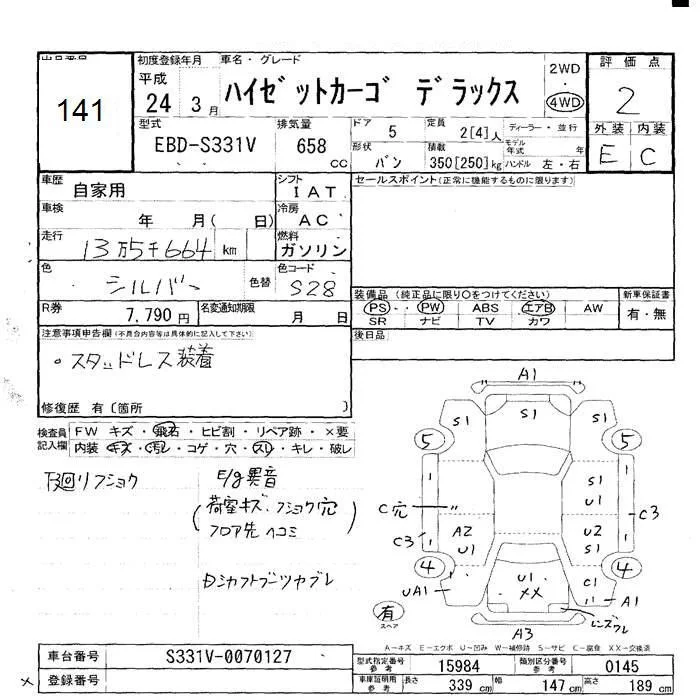 出品番号
141
初度登録年月
平成
24 3月
車名・グレード
ハイゼットカーゴ デラックス
2WD
4WD
評価点
2
外装 内装
E C
型式
EBD-S331V
排気量
658 CC
ドア 5
形状 バン
定員 2[4]人
積載 350[250]kg
ディーラー・並行
モデル年式 年
ハンドル 左・右
車歴
自家用
シフト
I A T
セールスポイント(正常に機能するものに限ります)
車検
年 月( 日)
冷房
A C
走行
13万5千664 km
燃料
ガソリン
色
シルバー
色替
色コード
S28
R券
7,790円
名変通知期限
月 日
装備品 (純正品に限り○をつけてください)
PS・ PW ABS エアB AW
SR ナビ TV カワ
新車保証書
有・無
後日品
注意事項申告欄(不具合内容等は具体的に記入して下さい)
・スタッドレス装着
修復歴 有 〔箇所 〕
検査員記入欄
FW キズ・飛石・ヒビ割・リペア跡・×要
内装・キズ・汚レ・コゲ・穴・スレ・キレ・破レ
下廻りフショク
E/g異音
(荷室キズ、フショク穴
フロア先 ヘコミ)
Dシャフトブーツヤブレ
A1
S1 S1 S1
5 5
S1
U1
C穴
C3
C3
A2
U1
U2
S1
4 4
UA1
U1
XX
C1
A1
有
スペア
レンズワレ
A3
A―キズ E―エクボ U―凹み W―補修跡 S―サビ C―腐食 XX―交換済
車台番号
S331V-0070127
登録番号
×
型式指定番号 参考
15984
類別区分番号 参考
0145
車庫証明用 参考
長さ 339 cm
幅 147 cm
高さ 189 cm